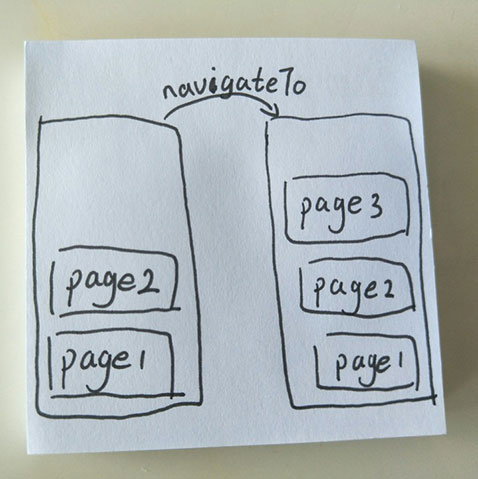 navigateTo
page2
page1
page3
page2
page1